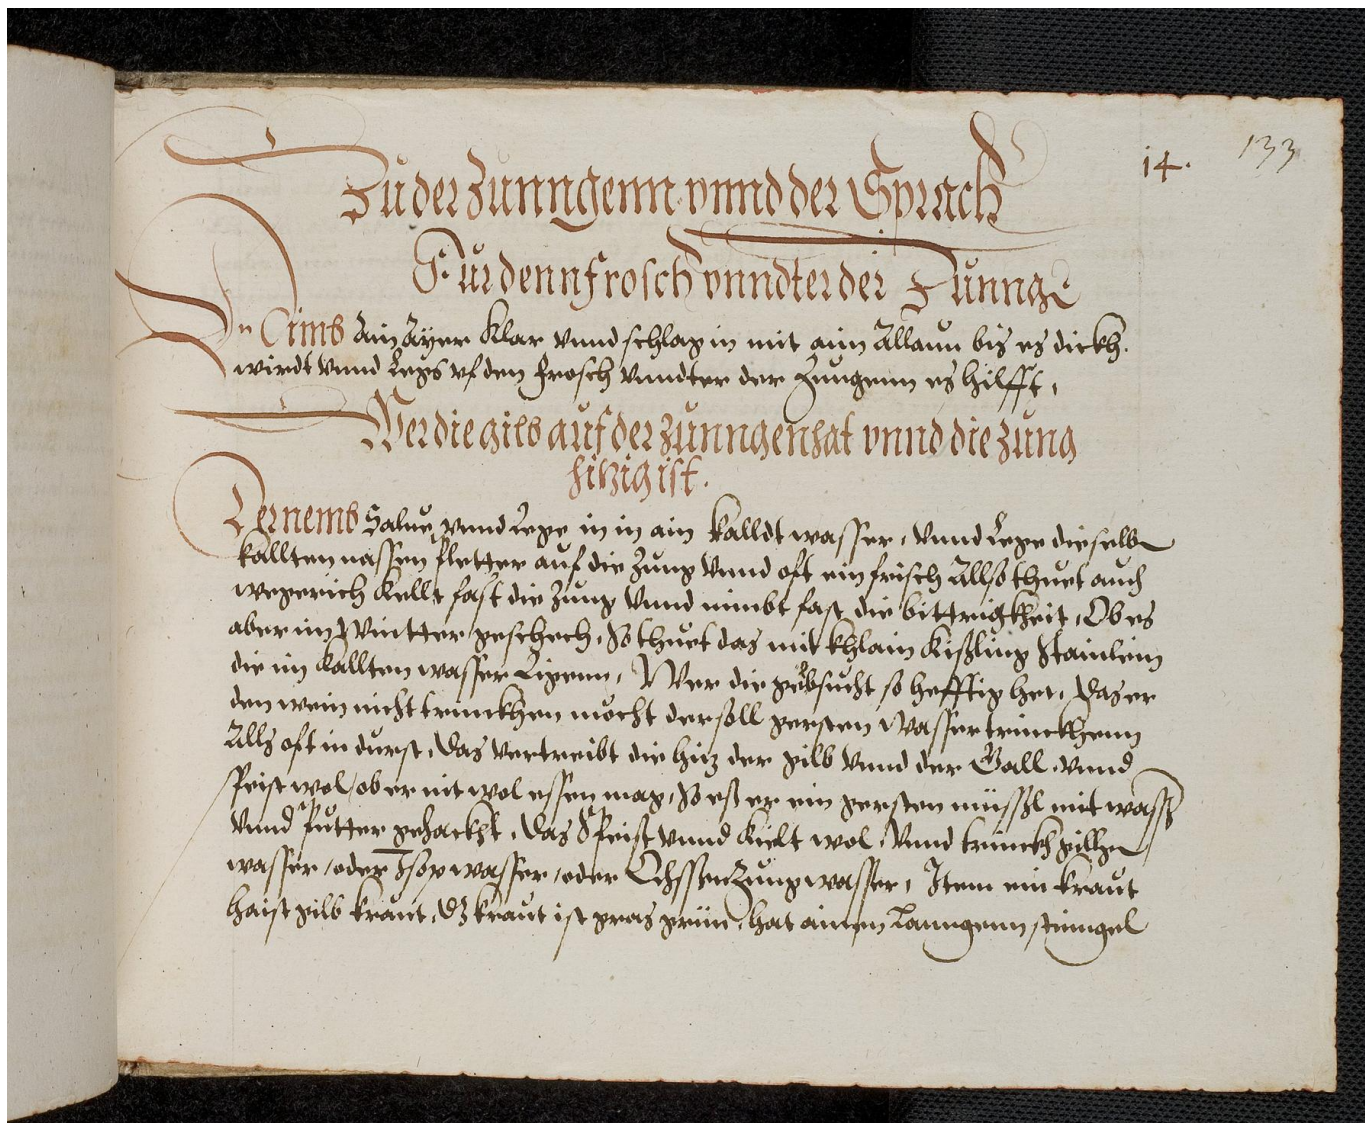 14. 133
Zu der Zunngenn vnnd der Sprach
Fur denn frosch vnndter der Zunng
Nimb Ain Ayer klar vnnd schlag in mit aim Allaun bis es dickh
wirdt vnnd Legs vf den frosch vnndter der Zungenn es hilfft,
Wer die gilb auf der Zunngen hat vnnd die Zung
hitzig ist.
Der nemb Salue, vnnd Lege in in ain kalldt wasser, vnnd Lege dieselbn
kallten nassen pletter auf die Zung vnnd oft ein frisch Allso thuet auch
wegerich kellt fast die Zung vnnd nimbt fast die bittrigkheit, Ob es
aber im Wintter geschech, so thuet das mit khlain kißling stainlein
die im kallten wasser Ligenn, Wer die gelbsucht so hefftig het, Das er
den wein nicht trinckhen mocht der soll gersten wasser trinckhenn
Alls oft in durst, Das vertreibt die hitz der gilb vnnd der Gall vnnd
speist wol, ob er nit wol essen mag, so eß er ein gersten müssl mit wass
vnnd putter gehackht, Das speist vnnd kielt wol, vnnd trinckh gillgn
wasser, oder Isop wasser, oder Ochssen Zung wasser, Item ein kraut
haist gilb kraut, Dz kraut ist gras grün, hat ainen lanngenn stenngel